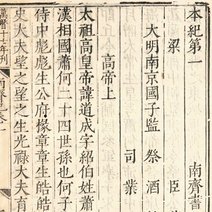 本紀第一　南齊書
梁　臣
大明南京國子監祭酒
司業
高帝上
太祖高皇帝諱道成字紹伯蕭
漢相國蕭何二十四世孫也何子
侍中彪彪生公府掾章章生皓皓
史大夫望之望之生光祿大夫育